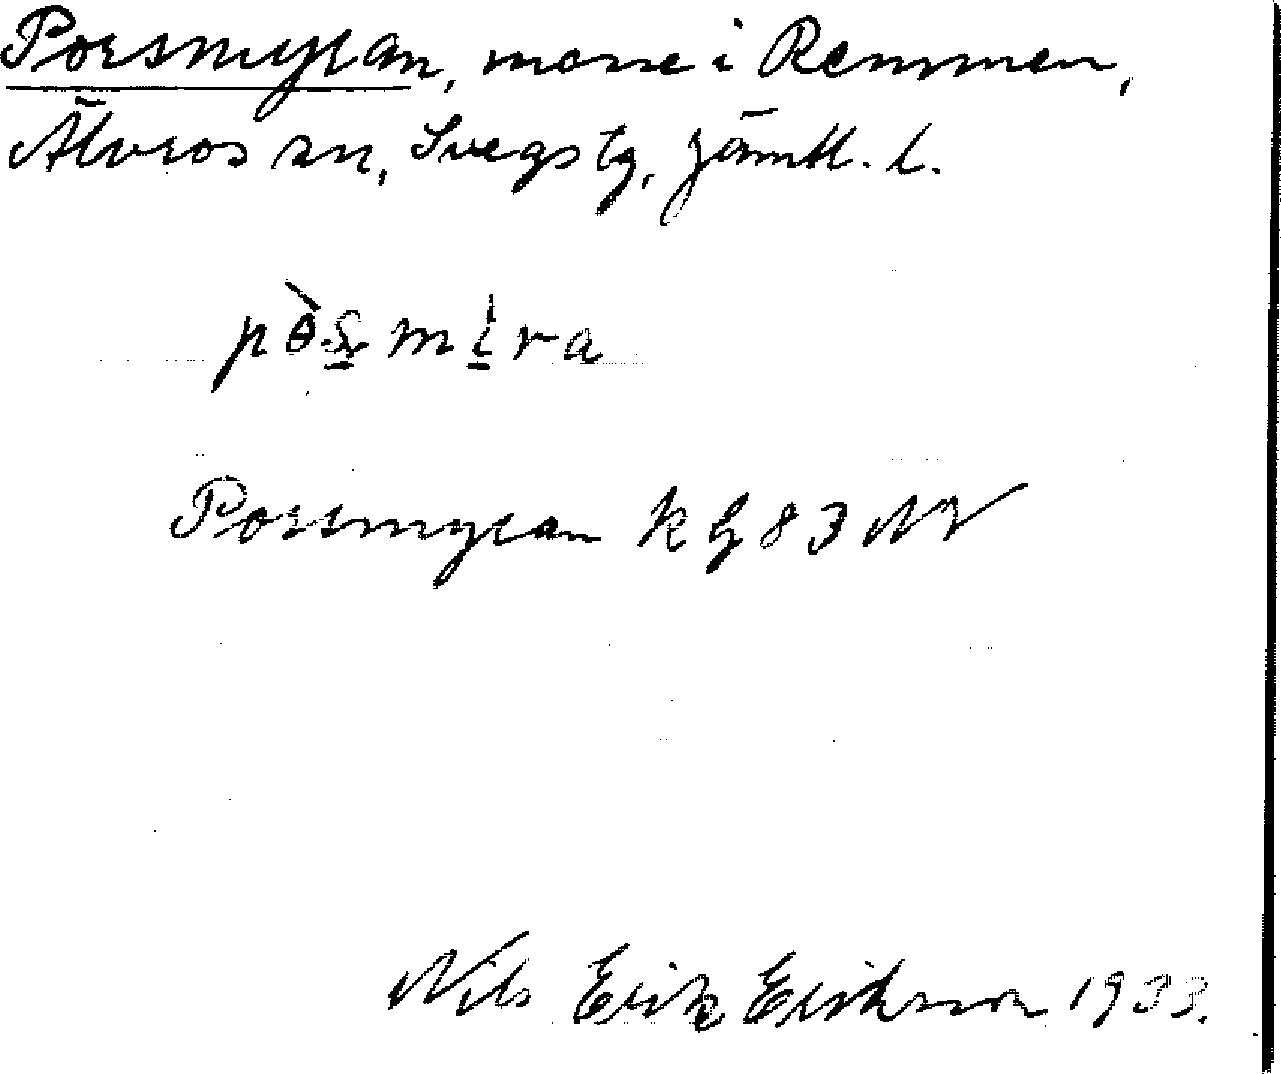 Porsmyran, mosse i Remmen,
Älvros sn, Svegs tg, Jämtl. l.
pòsmira
Porsmyran kg 83 NV
Nils Erik Erikson 1933.